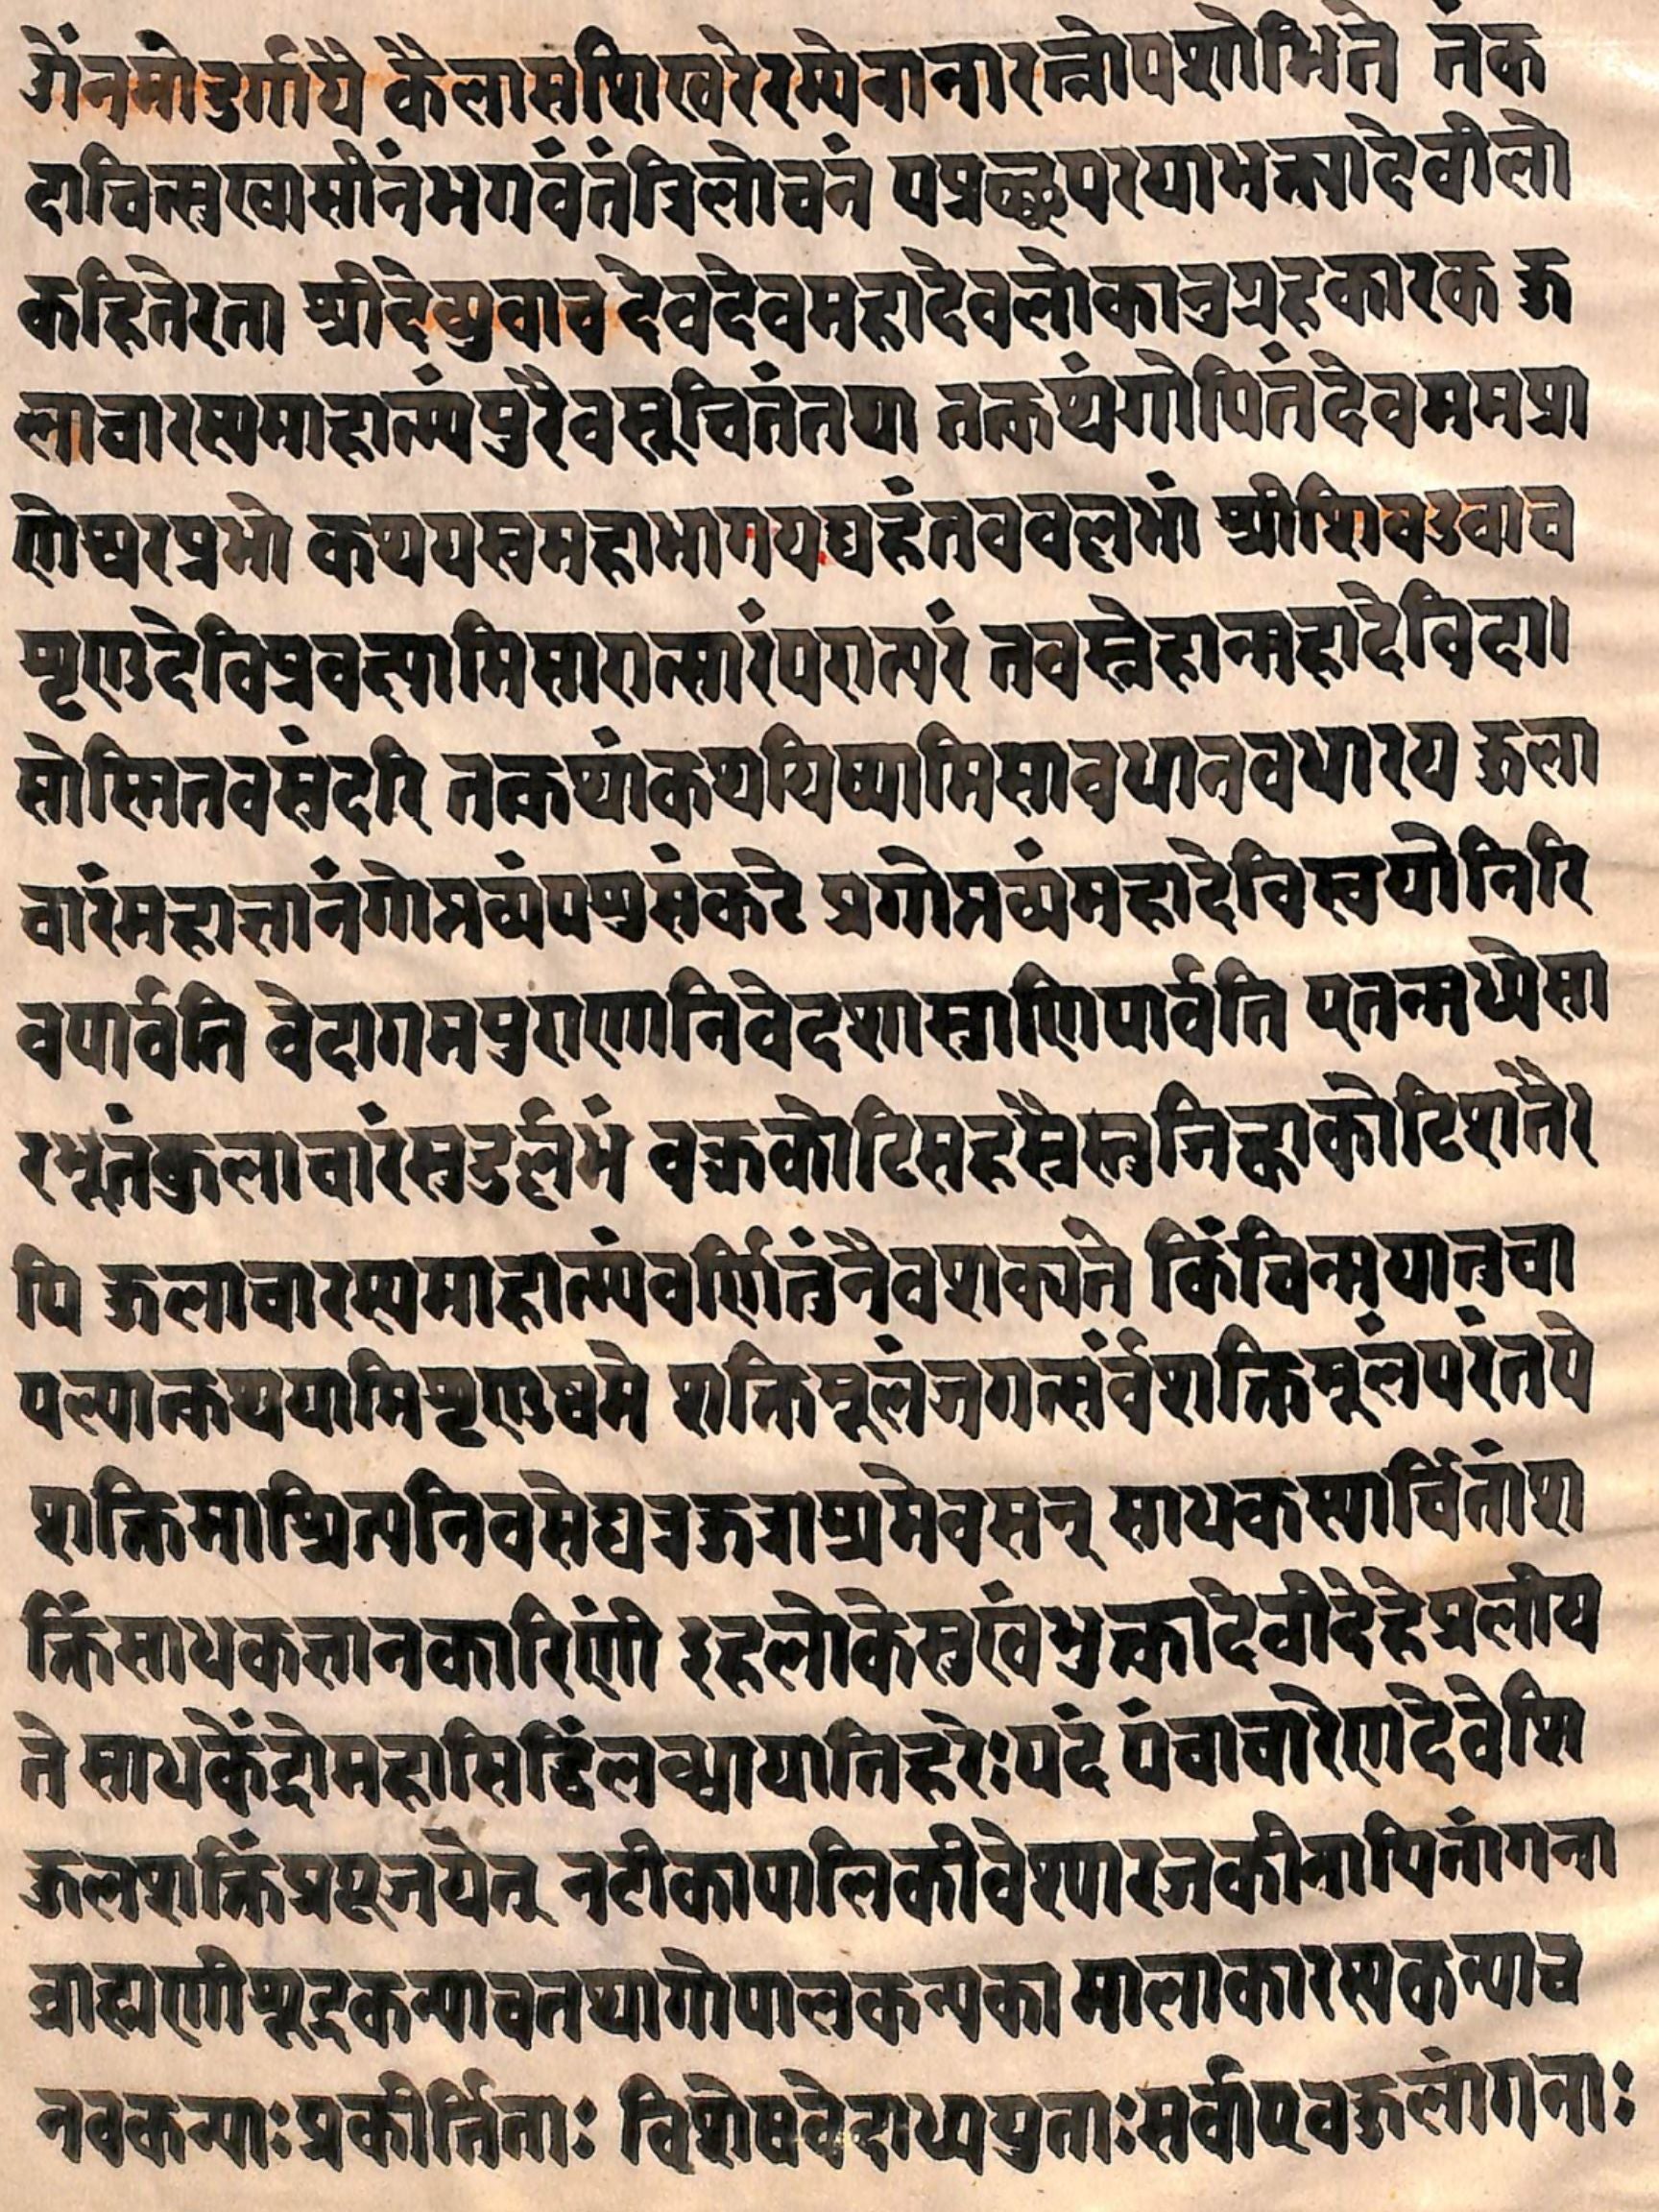 ॐनमोदुर्गायै कैलासशिखरेरम्येनानारत्नोपशोभिते तंक
दाचित्सुखासीनंभगवंतंत्रिलोचनं पप्रच्छपरयाभक्त्यादेवीलो
कहितेरता श्रीदेव्युवाच देवदेवमहादेवलोकानुग्रहकारक कु
लाचारस्यमाहात्म्यंपुरैवसूचितंतथा तत्कथ्यंगोपितंदेवममप्रा
णेश्वरप्रभो कथयस्वमहाभागयद्यहंतववल्लभां श्रीशिवउवाच
शृणुदेविप्रवक्ष्यामिसारात्सारंपरात्परं तवस्नेहान्महादेविदा।
सोस्मितवसुंदरि तत्कथांकथयिष्यामिसावधानवधारय कुला
चारंमहाज्ञानंगोप्तव्यंपशुसंकटे प्रगोप्तव्यंमहादेविस्वयोनिरि
वपार्वति वेदागमपुराणानिवेदशास्त्राणिपार्वति एतन्मध्येसा
रभूतंकुलाचारंसुदुर्लभं वक्त्रकोटिसहस्रैस्तुजिह्वाकोटिशतैर
पि कुलाचारस्यमाहात्म्यंवर्णितुंनैवशक्यते किंचिन्मयातुचा
पल्यात्कथयामिशृणुष्वमे शक्तिमूलंजगत्सर्वंशक्तिमूलंपरंतपे
शक्तिमाश्रित्यनिवसेद्यत्रकुत्राश्रमेवसन् साधकस्यार्चितांश
क्तिंसाधकज्ञानकारिणीं इहलोकेसुखंभुक्त्वादेवीदेहेप्रलीय
ते साधकेंद्रोमहासिद्धिंलब्धायातिहरेःपदं पंचाचारेणदेवेशि
कुलशक्तिंप्रपूजयेत् नटीकापालिकीवेश्यारजकीनापितांगना
ब्राह्मणीशूद्रकन्याचतथागोपालकन्यका मालाकारस्यकन्याच
नवकन्याःप्रकीर्त्तिताः विशेषवेदाध्ययुताःसर्वाएवकुलांगनाः